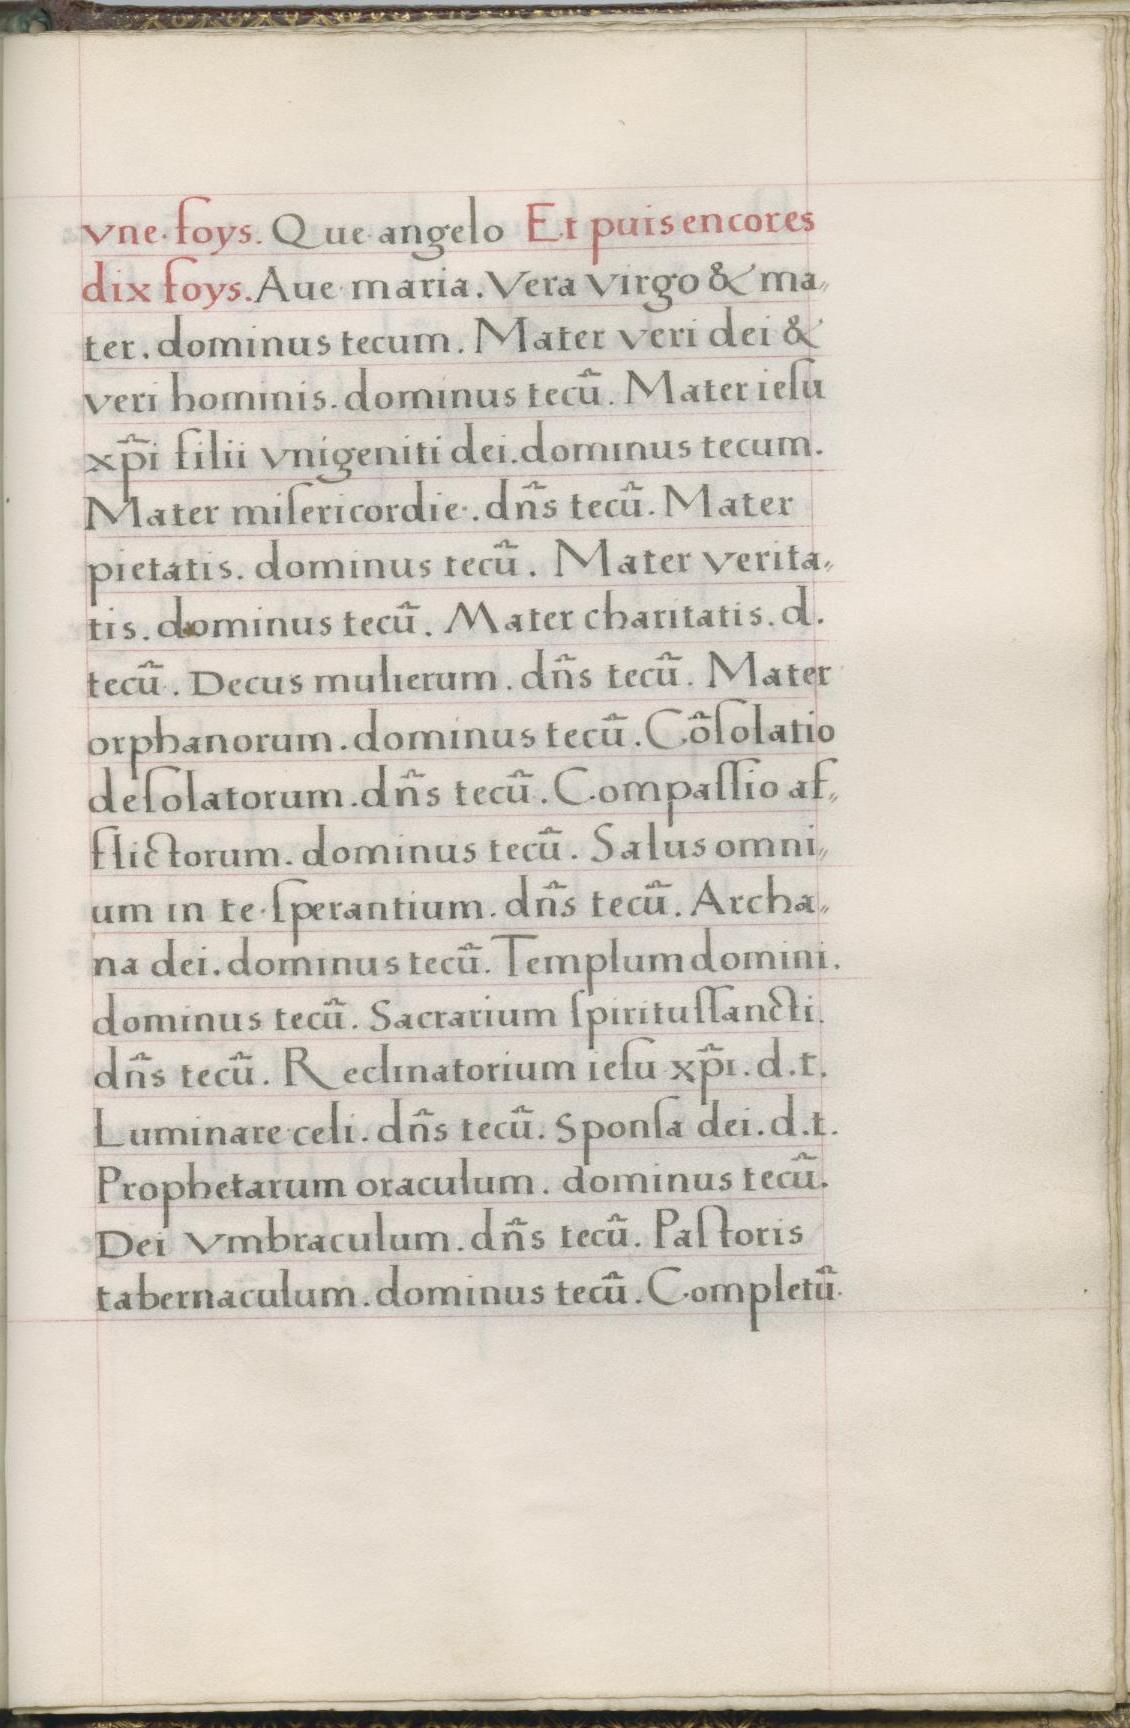 vne foys. Que angelo Et puis encores
dix foys. Aue maria. Vera virgo & ma„
ter. dominus tecum. Mater veri dei &
veri hominis. dominus tecu᷈. Mater ieſu
xp̃i filii vnigeniti dei. dominus tecum.
Mater miſericordie. dñs tecũ. Mater
pietatis. dominus tecũ. Mater verita„
tis. dominus tecũ. Mater charitatis. d.
tecũ. Decus mulierum. dñs tecũ. Mater
orphanorum. dominus tecũ. Cõſolatio
deſolatorum. dñs tecũ. Compaſſio af„
flictorum. dominus tecũ. Salus omni„
um in te ſperantium. dñs tecũ. Archa„
na dei. dominus tecũ. Templum domini.
dominus tecũ. Sacrarium ſpirituſſancti.
dñs tecũ. Reclinatorium ieſu xp̃i. d. t.
Luminare celi. dñs tecũ. Sponſa dei. d. t.
Prophetarum oraculum. dominus tecũ.
Dei vmbraculum. dñs tecũ. Paſtoris
tabernaculum. dominus tecũ. Completũ.